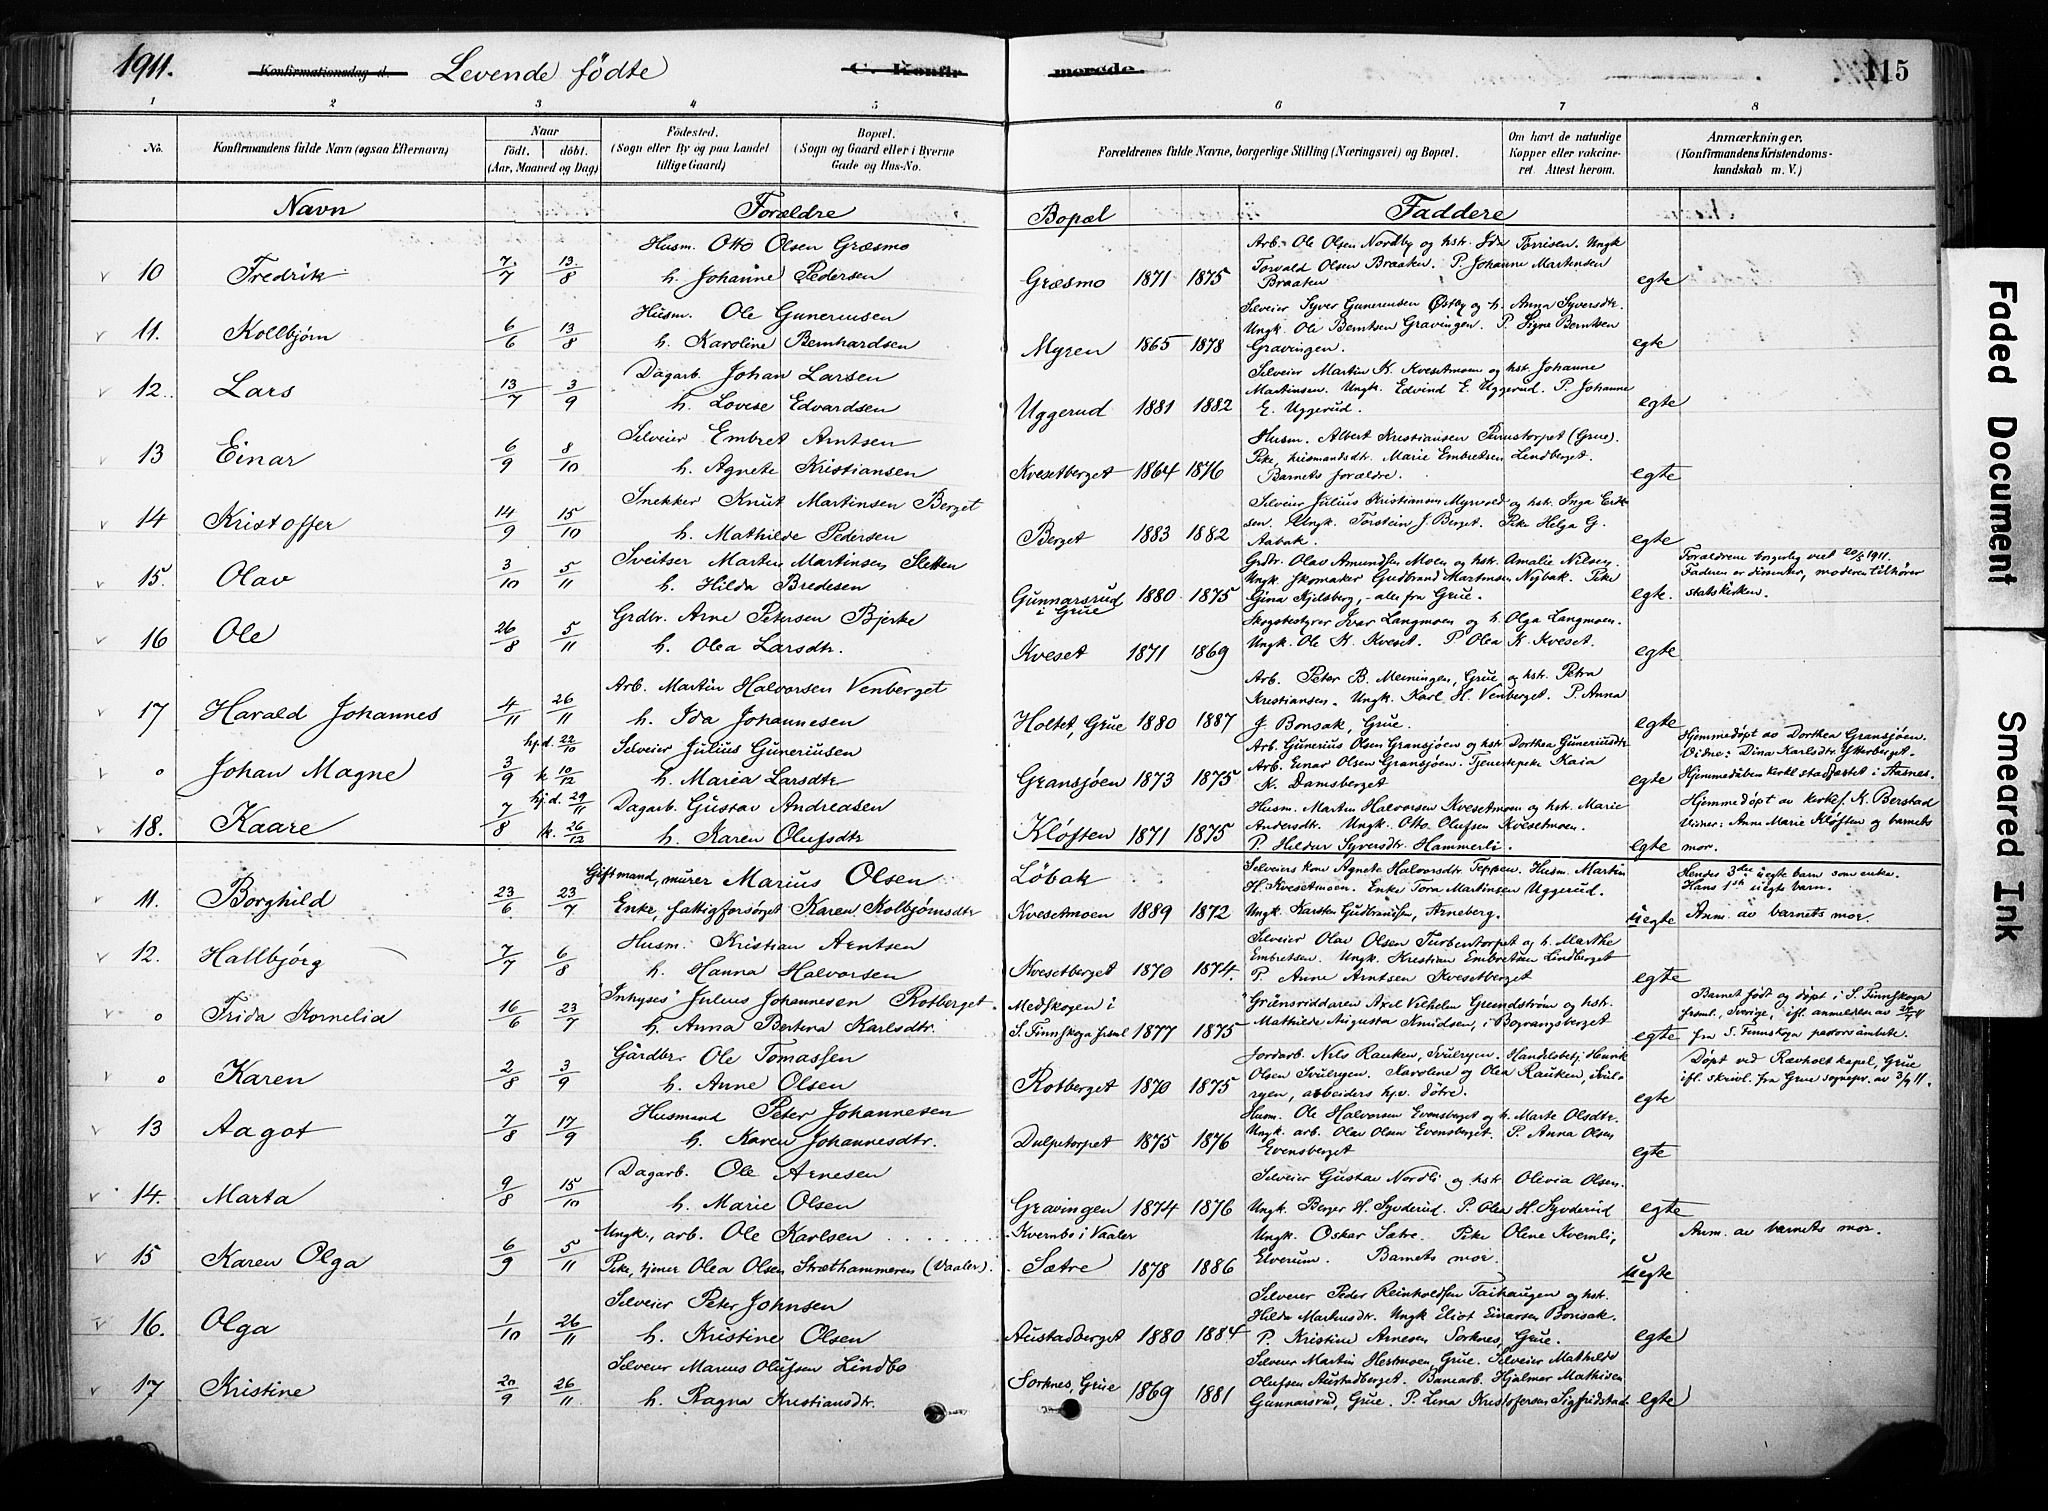 1911. Konfirmationsdag d. Levende fødte C. Konfirmerede. 115
1 2 3 4 5 6 7 8
No. Konfirmandens fulde Navn (ogsaa Efternavn) Naar født. døbt. (Aar, Maaned og Dag) Fødested. (Sogn eller By og paa Landet tillige Gaard) Bopæl. (Sogn og Gaard eller i Byerne Gade og Hus-No. Forældrenes fulde Navne, borgerlige Stilling (Næringsvei) og Bopæl. Om havt de naturlige Kopper eller vakcineret. Attest herom. Anmærkninger. (Konfirmandens Kristendomskundskab m. V.)
Navn Forældre Bopæl Faddere
Husm. Otto Olsen Græsmo
10 Fredrik 7/7 13/8 h. Johanne Pedersen Græsmo 1871 1875 egte
Arb. Ole Olsen Nordby og hstr. Ida Torrisen. Ungk.
Torvald Olsen Braaten. P. Johanne Martinsen
Braaten
Husm. Ole Guneriusen
11. Kollbjørn 6/6 13/8 h. Karoline Bernhardsen Myren 1865 1878 egte
Selveier Syver Guneriusen Østby og h. Anna Syversdtr.
Ungk. Ole Berntsen Gravingen. P. Signe Berntsen
Gravingen.
Dagarb. Johan Larsen
12. Lars 13/7 3/9 h. Lovise Edvardsen Uggerud 1881 1882 egte
Selveier Martin K. Kvesetmoen og hstr. Johanne
Martinsen. Ungk. Edvind E. Uggerud. P. Johanne
E. Uggerud.
Selveier Embret Arntsen
13 Einar 6/9 8/10 h. Agnete Kristiansen Kvesetberget 1864 1876 egte
Husm. Albert Kristiansen (Grue).
Pike, husmandsdtr. Marie Embretsen Lindberget.
Barnets forældre.
Snekker Knut Martinsen Berget
14 Kristoffer 14/9 15/10 h. Mathilde Pedersen Berget 1883 1882 egte
Selveier Julius Kristiansen Myrvold og hstr. Inga Erik
sen. Ungk. Torstein J. Berget. Pike Helga G.
Aabak.
Sveitser Martin Martinsen Sletten
15. Olav 3/10 5/11 h. Hilda Bredesen Gunnarsrud i Grue 1880 1875 egte.
Grdr. Olav Amundsen Moen og hstr. Amalie Nilsen.
Ungk. Skomaker Gudbrand Martinsen Nybak. Pike
Gina Kjelsberg, - alle fra Grue.
Forældrene borgerlig viet 20/5 1911.
Faderen er dissenter, moderen tilhører
statskirken.
Grdbr. Arne Petersen Bjerke
16 Ole 26/8 5/11 h. Olea Larsdtr. Kveset 1871 1869 egte
Skogbestyrer Ivar Langmoen og h. Olga Langmoen.
Ungk. Ole K. Kveset. P. Olea K. Kveset.
Arb. Martin Halvorsen Venberget
17 Harald Johannes 4/11 26/11 h. Ida Johannesen Holtet, Grue 1880 1887 egte
Arb. Peter B. Meiningen, Grue og hstr. Petra
Kristiansen. Ungk. Karl H. Venberget. P. Anna
J. Bonsak, Grue.
Selveier Julius Guneriusen
o Johan Magne 3/9 hj.d. 22/10 k. 10/12 h. Maria Larsdtr Gransjøen 1873 1875 egte
Arb. Gunerius Olsen Gransjøen og hstr. Dorthea Guneriusdtr
Arb. Einar Olsen Gransjøen. Tjenestepike Kaia
K. Damsberget
Hjemmedøpt av Dorthea Gransjøen.
Vidne: Dina Karlsdtr. Ytterberget.
Hjemmedåben kirkl. stadfæstet i Aasnes.
Dagarb. Gustav Andreasen
18. Kaare 7/8 hj.d. 29/11 k. 26/12 h. Karen Olufsdtr Kløften 1871 1875 egte
Husm. Martin Halvorsen Kvesetmoen og hstr. Marie
Andersdtr. Ungk. Otto Olufsen Kvesetmoen.
P. Hildur Syversdtr. Hammerli.
Hjemmedøpt av kirkes. K. Berstad
Vidner: Anne Marie Kløften og barnets
mor.
Giftmand, murer Marius Olsen Løbak
11. Borghild 23/6 23/7 Enke, fattigforsørget Karen Kolbjørnsdtr Kvesetmoen 1889 1872 uegte
Selveiers kone Agnete Halvorsdtr Teppen. Husm. Martin
H. Kvesetmoen. Enke Tora Martinsen Uggerud.
Ungk. Karsten Gudbrandsen, Arneberg.
Hendes 3die uegte barn som enke.
Hans 1st uegte barn.
Anm. av barnets mor.
Husm. Kristian Arntsen
12. Hallbjørg 7/7 6/8 h. Hanna Halvorsen Kvesetberget 1870 1874. egte
Selveier Olav Olsen Turbentorpet og h. Marthe
Embretsen. Ungk. Kristian Embretsen Lindberget
P. Anne Arntsen Kvesetberget
"Inhyses" Julius Johannesen Rotberget.
o Frida Kornelia 16/6 23/7 h. Anna Bertina Karlsdtr. Medskogen i S. Finnskoga frsml 1877 1875 egte
"Gränsriddaren Axel Vilhelm Grundström og hstr.
Mathilde Augusta Knudsen, i Bograngsberget
Barnet født og døpt i S. Finnskoga
frsml., Sverige, ifl. anmeldelse av
fra S. Finnskoga pastorsämbete.
Gårdbr. Ole Tomassen
o Karen 2/8 3/9 h. Anne Olsen Rotberget 1870 1875 egte
Jordarb. Nils Rauken, Svulryen. Handelsbetj. Henrik
Olsen Svulryen. Karoline og Olea Rauken, Svul-
ryen, arbeiders hjv. døtre.
Døpt ved Rævholt kapel, Grue
ifl. skrivl. fra Grue sognepr. av 3/9 11.
Husmand Peter Johannesen
13 Aagot 7/8 17/9 h. Karen Johannesdtr. Dulpetorpet 1875 1876 egte
Husm. Ole Halvorsen Evensberget og h. Marte Olsdtr.
Ungk. arb. Olav Olsen Evensberget. P. Anna Olsen
Evensberget
Dagarb. Ole Arnesen
14. Marta 9/8 15/10 h. Marie Olsen Gravingen 1874 1876 egte
Selveier Gustav Nordli og hstr Olivia Olsen.
Ungk. Berger H. Syverud. P. Olea H. Syverud
Ungk., arb. Ole Karlsen . . . . . . Kvernbo i Vaaler
15 Karen Olga 6/9 5/11 Pike, tjener Olea Olsen Stræthammeren (Vaaler). Sætre 1878 1886 uegte
Ungk. Oskar Sætre. Pike Olene Kvernli,
Elverum. Barnets mor.
Anm. av barnets mor.
Selveier Peter Johnsen
16. Olga 1/10 26/11 h. Kristine Olsen Austadberget 1880 1884 egte
Selveier Peder Reinholdsen Taihaugen og hstr.
Hilda Martinsdtr. Ungk Eliot Einarsen Bonsak.
P. Kristine Arnesen Sorknes, Grue.
Selveier Marius Olufsen Lindbo
17 Kristine 20/9 26/11 h. Ragna Kristiansdtr. Sorknes, Grue 1869 1881 egte
Selveier Martin Hestmoen, Grue. Selveier Mathilde
Olufsen Austadberget. Banearb. Hjalmar Mathisen
Gunnarsrud, Grue. P. Lina Kristofersen Sigfridstad.
Faded Document
Smeared Ink